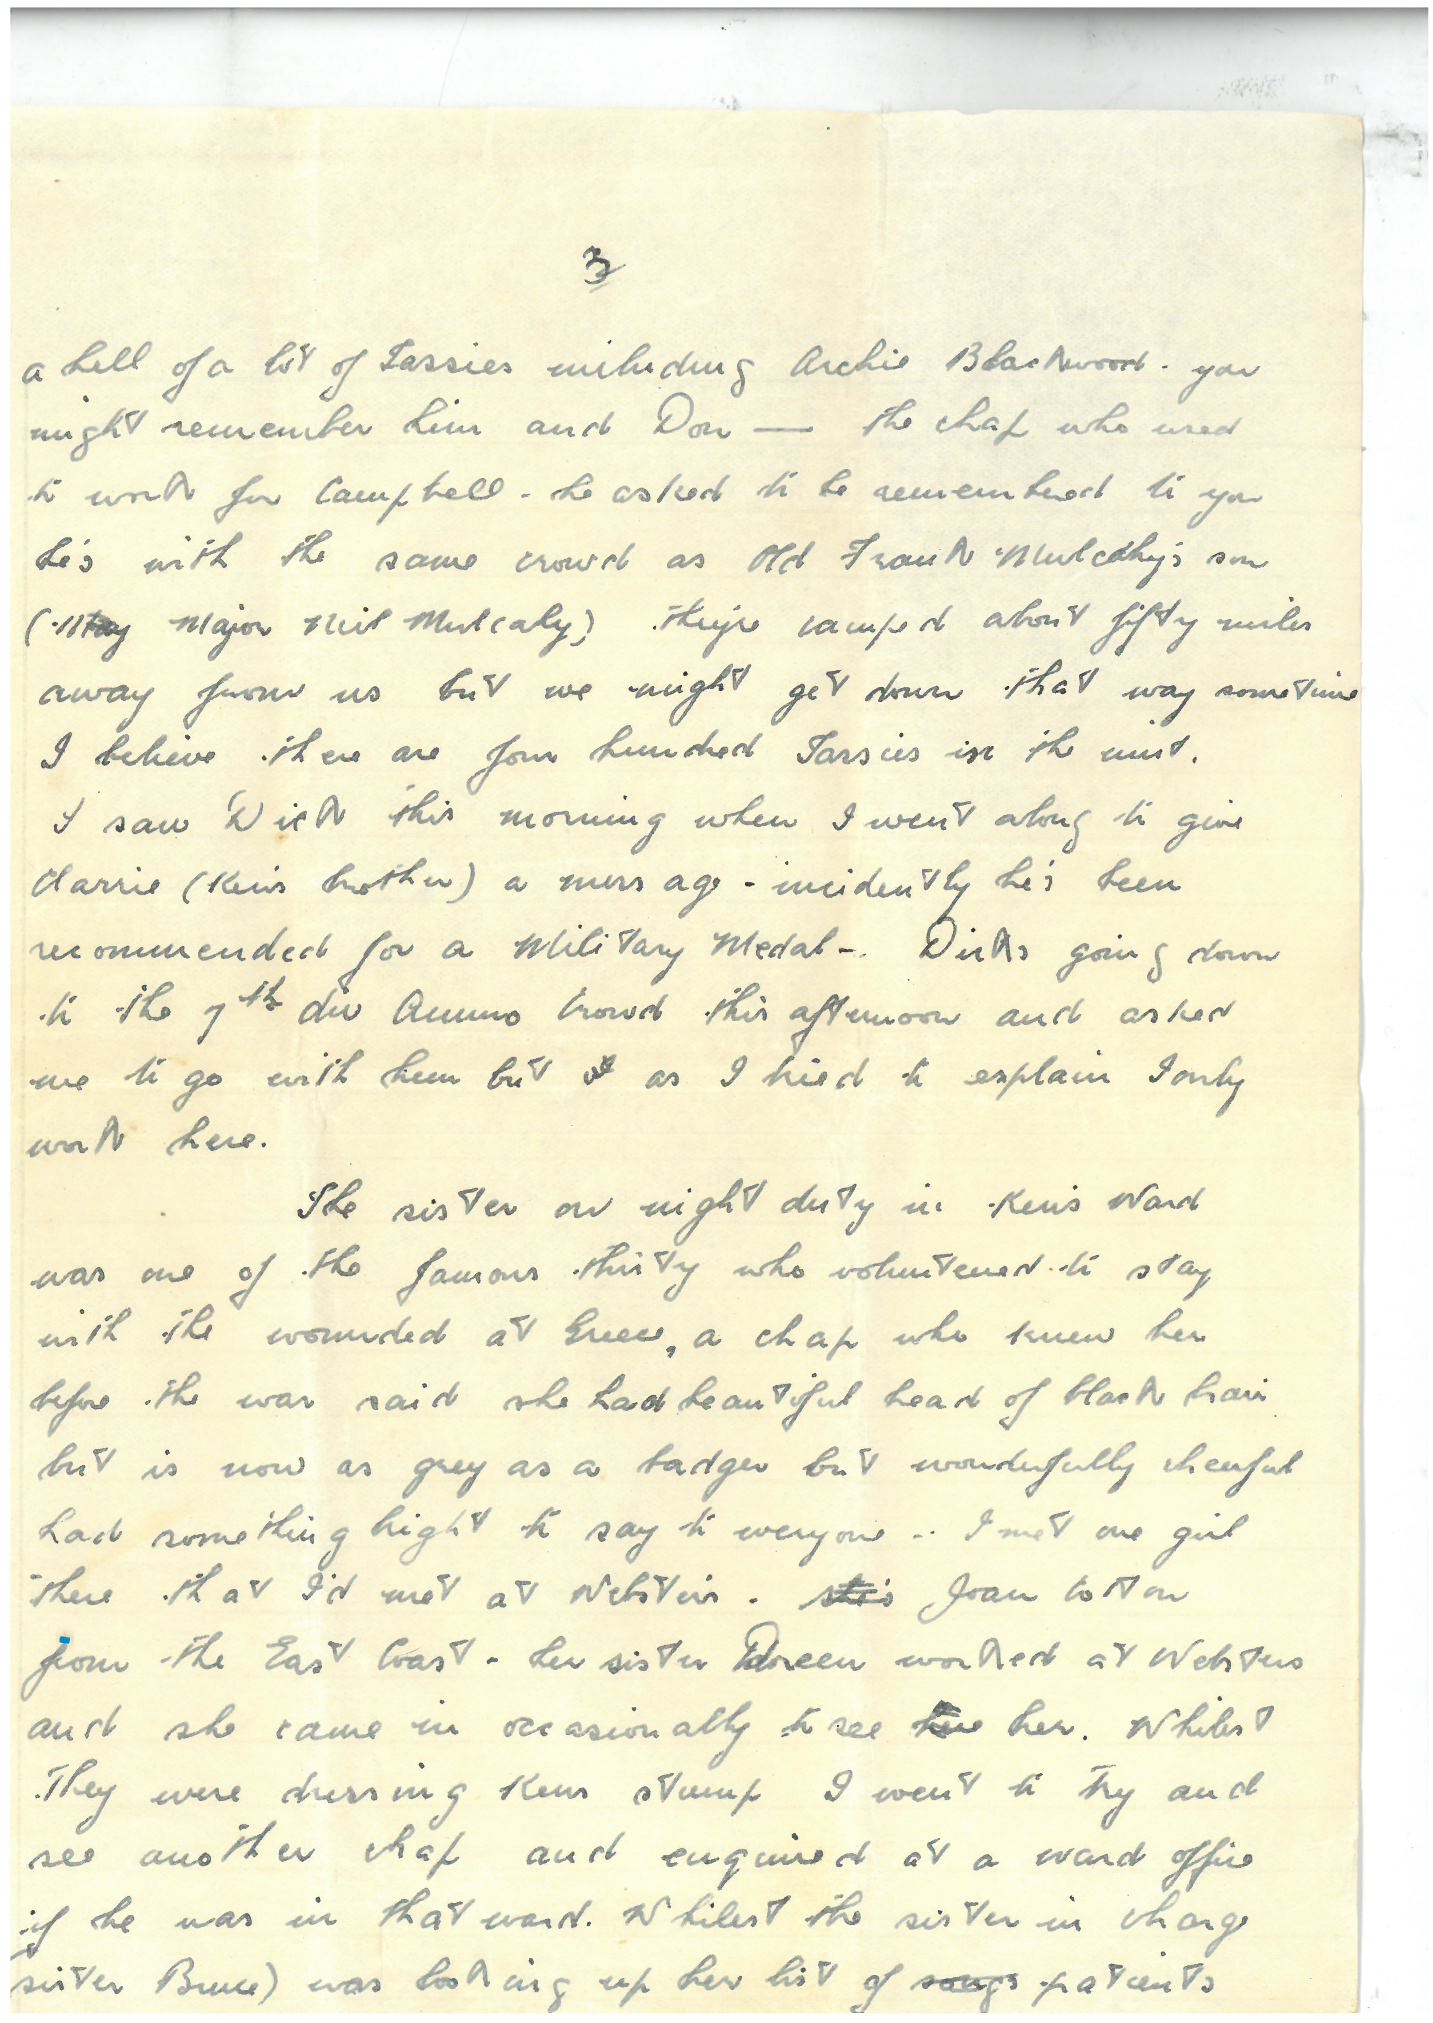 3
a hell of a lot of Tassies including Archie Blackwood. you
might remember him and Don — the chap who used
to work for Campbell - he asked to be remembered to you
he's with the same crowd as Old Frank Mulcahy's son
( Major Neil Mulcahy) they're camped about fifty miles
away from us but we might get down that way sometime
I believe there are four hundred Tassies in the unit.
I saw Dick this morning when I went along to give
Harrie (Ken's brother) a message - incidently he's been
recommended for a Military Medal -. Dick's going down
to the 7th div Ammo Crowd this afternoon and asked
me to go with them but as I tried to explain I only
work here.
The sister on night duty in Ken's Ward
was one of the famous thirty who volunteered to stay
with the wounded at Greece, a chap who knew her
before the war said she had beautiful head of black hair
but is now as grey as a badger but wonderfully cheerful
had something bright to say to everyone .. I met one girl
there that I'd met at Websters. Joan Cotton
from the East Coast - her sister Doreen worked at Websters
and she came in occasionally to see her. Whilest
they were dressing Kens stump I went to try and
see another chap and enquired at a ward office
if he was in that ward. Whilest the sister in charge
sister Bruce) was looking up her list of patients